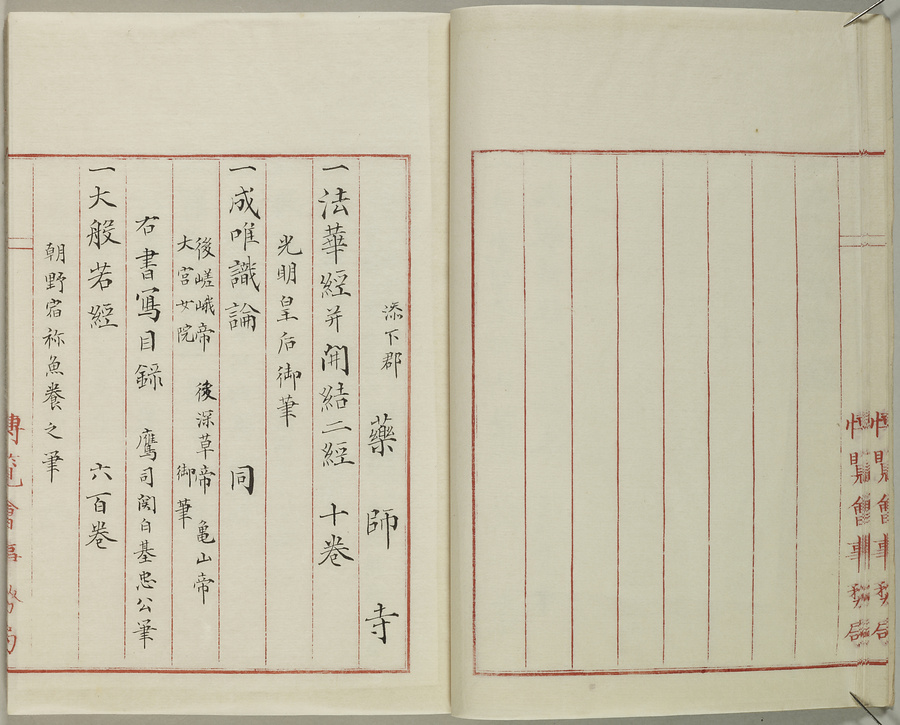 添下郡 藥師寺
一法華經并開結二經 十巻
光明皇后御筆
一成唯識論 同
後嵯峨帝 後深草帝 亀山帝
大宮女院 御筆
右書寫目録 鷹司関白基忠公筆
一大般若經 六百巻
朝野宿祢魚養之筆
博覧會事務局
博覧會事務局